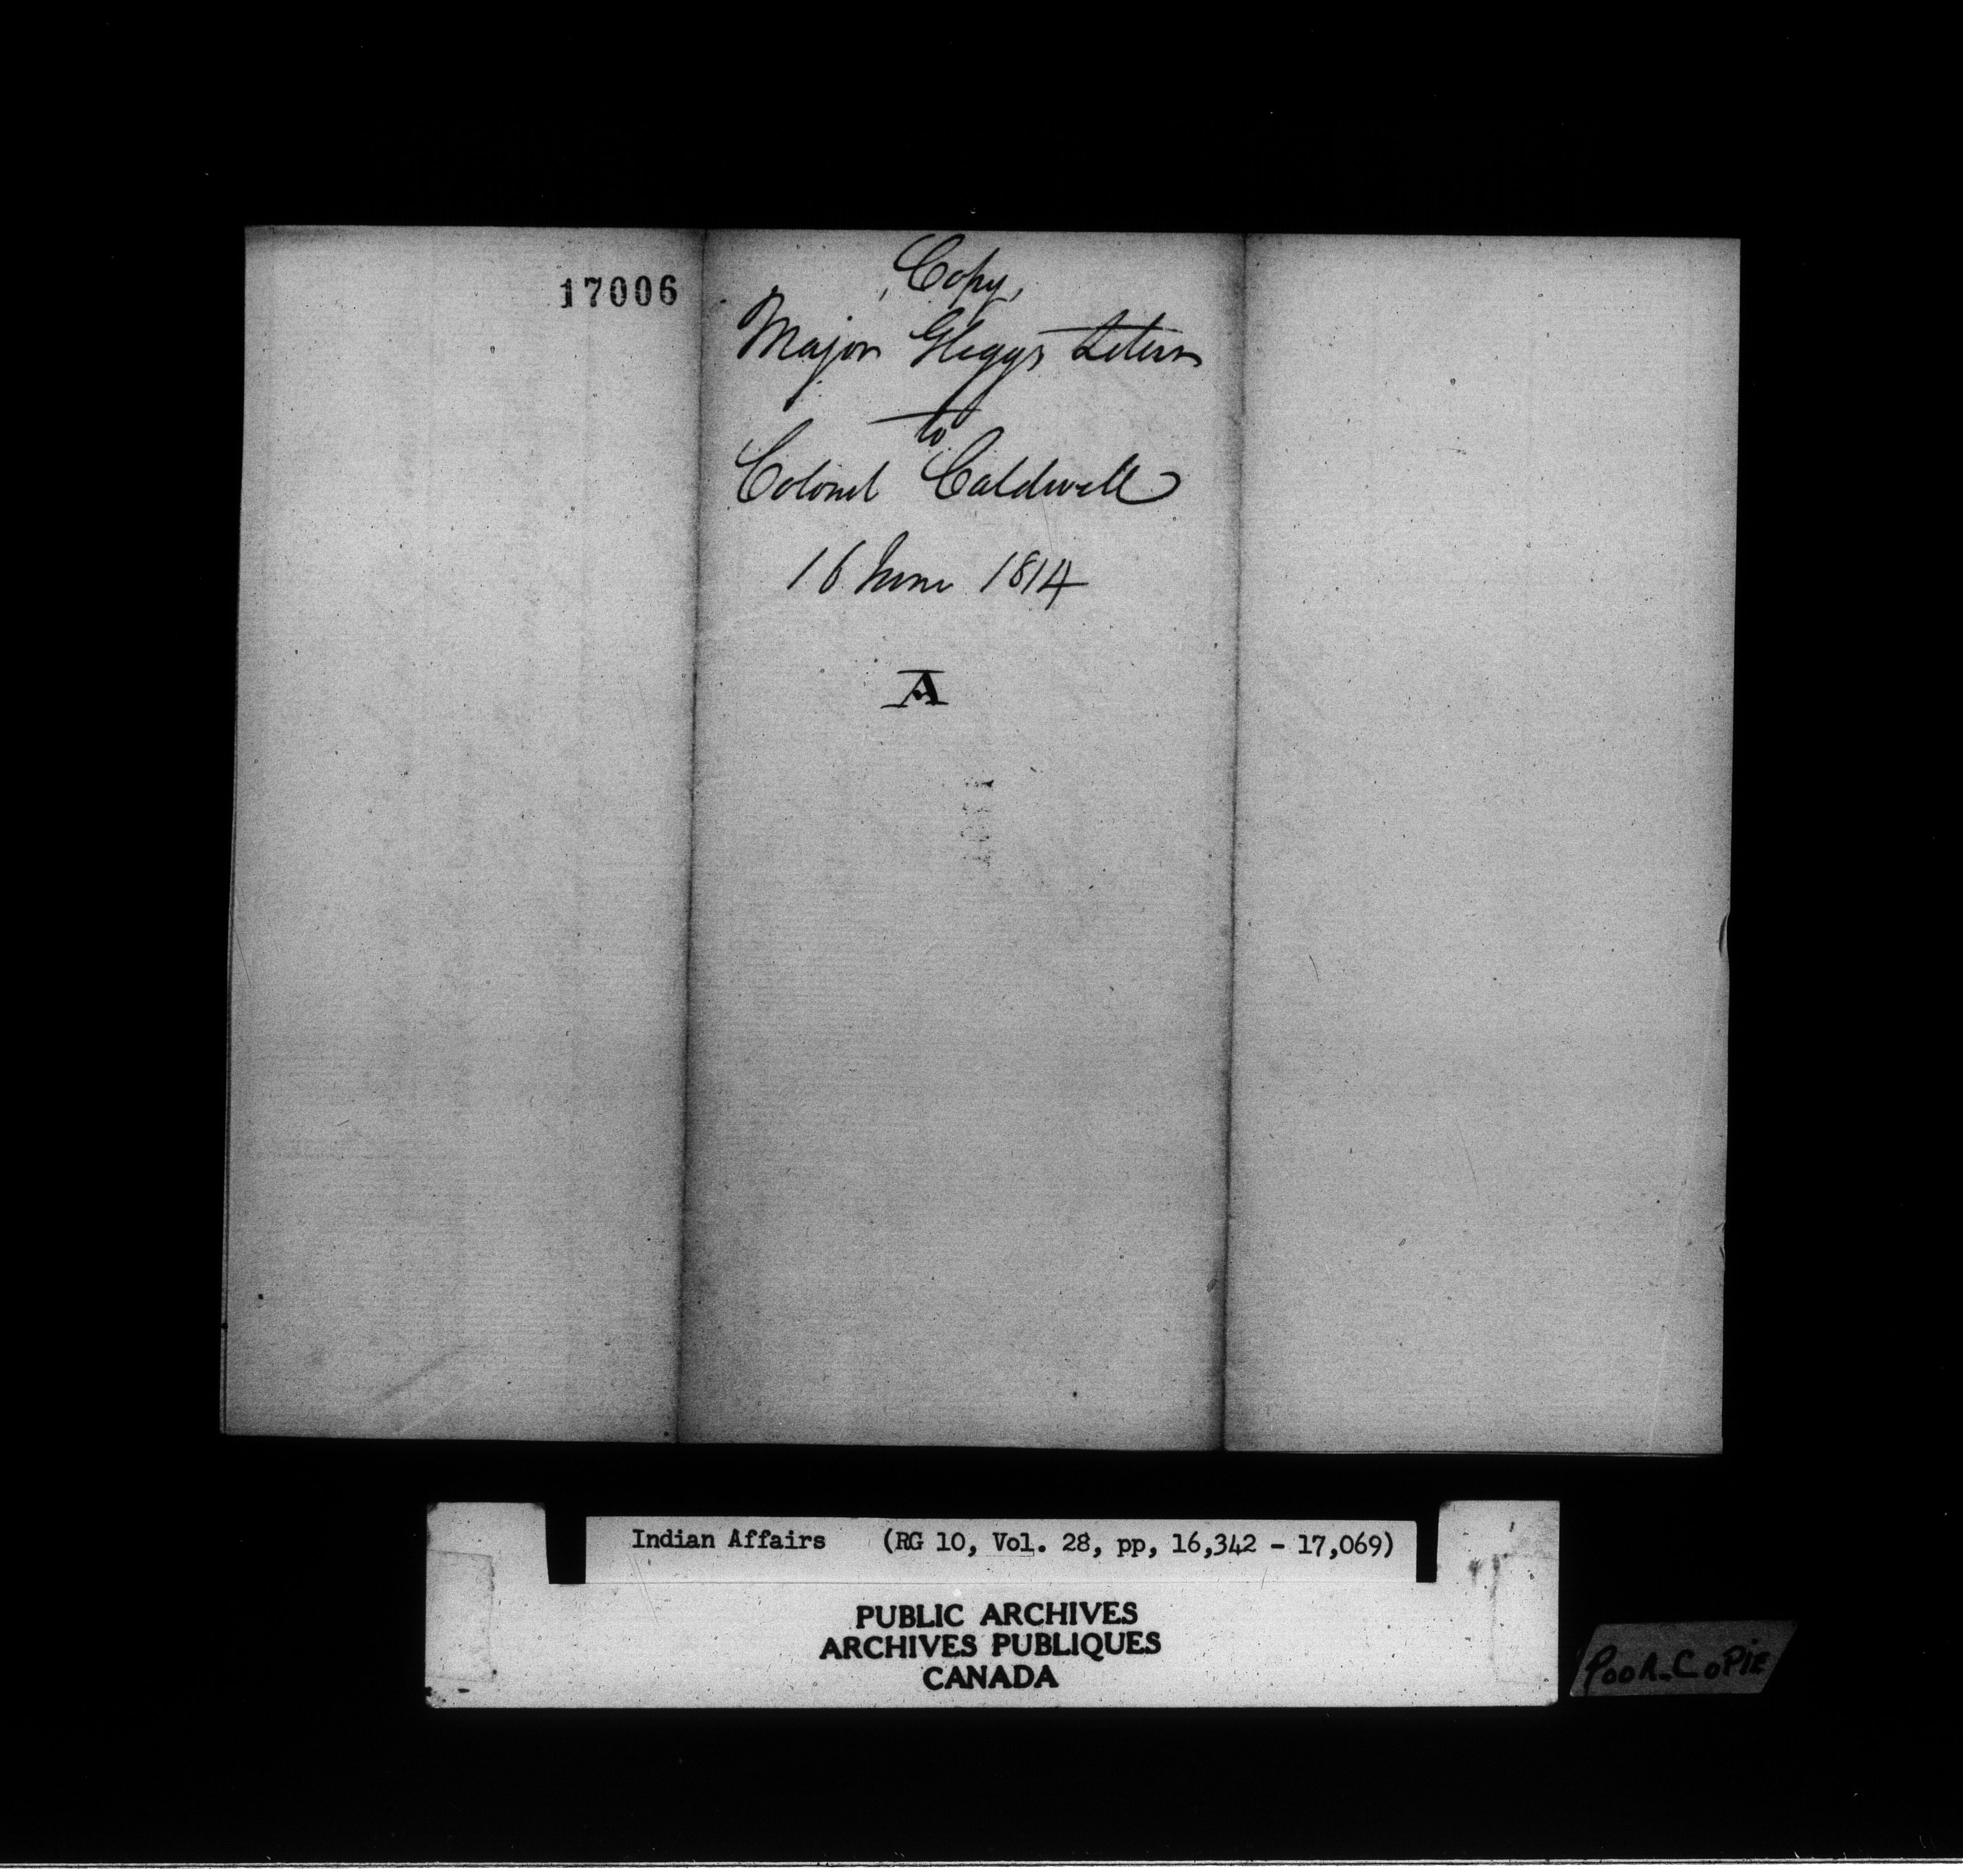 17006
Copy,
Major Gleggs Letter
to
Colonel Caldwell
16 June 1814
A
Indian Affairs (RG 10, Vol. 28, pp, 16,342 - 17,069)
PUBLIC ARCHIVES
ARCHIVES PUBLIQUES
CANADA
POOR COPIE